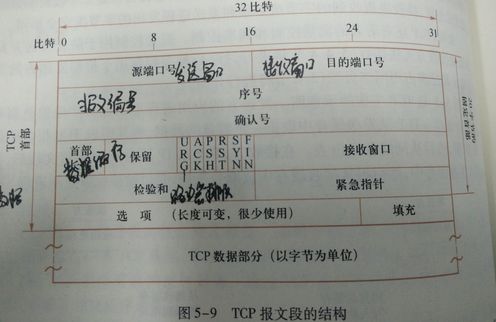 32 比特
比特 0 8 16 24 31
源端口号 发送窗口 接收窗口 目的端口号
报文编号 序号
确认号
TCP 首部
首部 保留 URG ACK PSH RST SYN FIN 接收窗口
检验和 紧急指针
选 项 （长度可变，很少使用） 填充
TCP 数据部分（以字节为单位）
图 5-9 TCP 报文段的结构